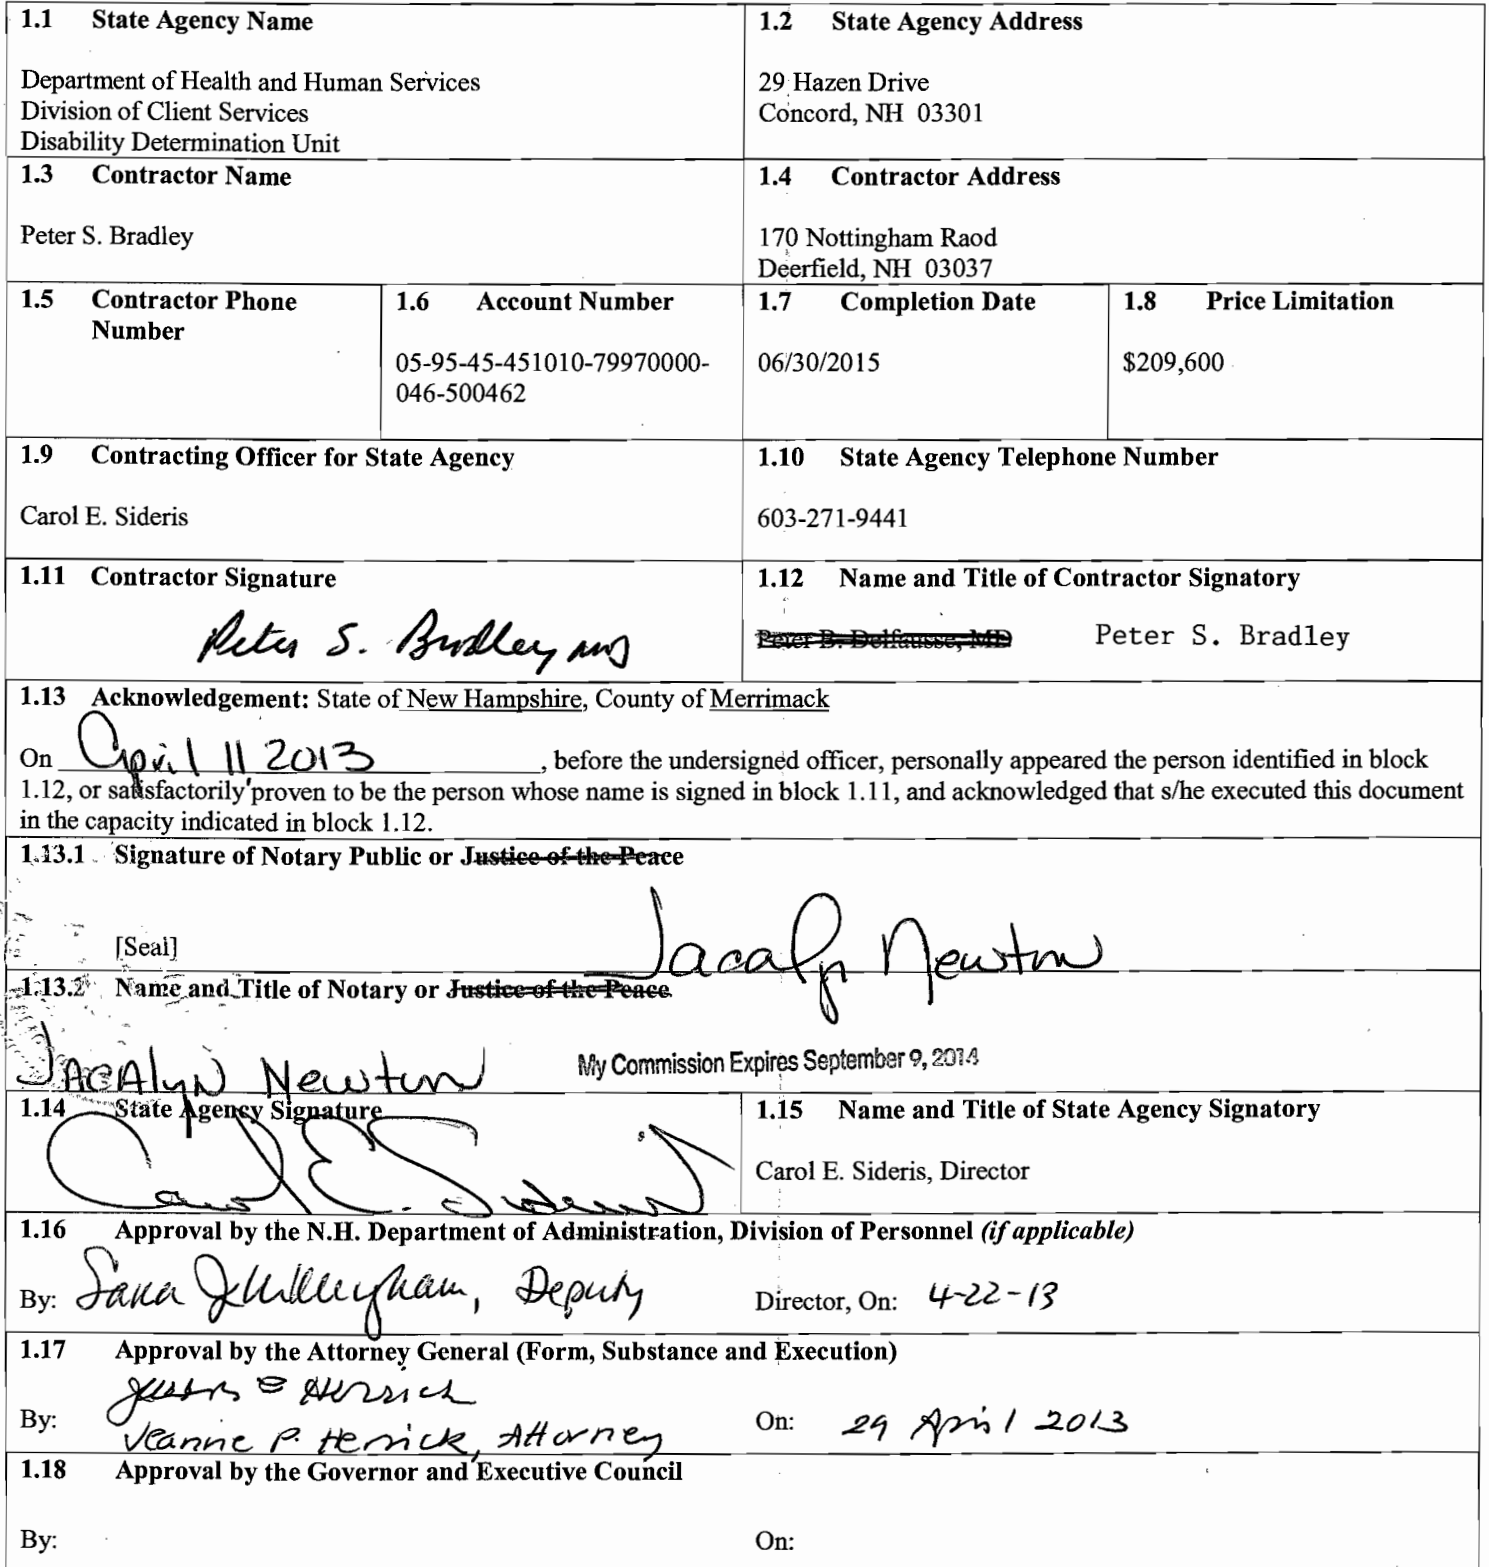 1.1 State Agency Name
Department of Health and Human Services
Division of Client Services
Disability Determination Unit
1.2 State Agency Address
29 Hazen Drive
Concord, NH 03301
1.3 Contractor Name
Peter S. Bradley
1.4 Contractor Address
170 Nottingham Raod
Deerfield, NH 03037
1.5 Contractor Phone
Number
1.6 Account Number
05-95-45-451010-79970000-
046-500462
1.7 Completion Date
06/30/2015
1.8 Price Limitation
$209,600
1.9 Contracting Officer for State Agency
Carol E. Sideris
1.10 State Agency Telephone Number
603-271-9441
1.11 Contractor Signature
Peter S. Bradley MD
1.12 Name and Title of Contractor Signatory
Peter B. Delfausse, MD Peter S. Bradley
1.13 Acknowledgement: State of New Hampshire, County of Merrimack
On April 11 2013, before the undersigned officer, personally appeared the person identified in block
1.12, or satisfactorily proven to be the person whose name is signed in block 1.11, and acknowledged that s/he executed this document
in the capacity indicated in block 1.12.
1.13.1 Signature of Notary Public or Justice of the Peace
Jacalyn Newton
[Seal]
1.13.2 Name and Title of Notary or Justice of the Peace
Jacalyn Newton My Commission Expires September 9, 2014
1.14 State Agency Signature
Carol E. Sideris
1.15 Name and Title of State Agency Signatory
Carol E. Sideris, Director
1.16 Approval by the N.H. Department of Administration, Division of Personnel (if applicable)
By: Sara J Willingham, Deputy Director, On: 4-22-13
1.17 Approval by the Attorney General (Form, Substance and Execution)
Herrick
By: Jeanne P. Herrick, Attorney On: 29 April 2013
1.18 Approval by the Governor and Executive Council
By: On: